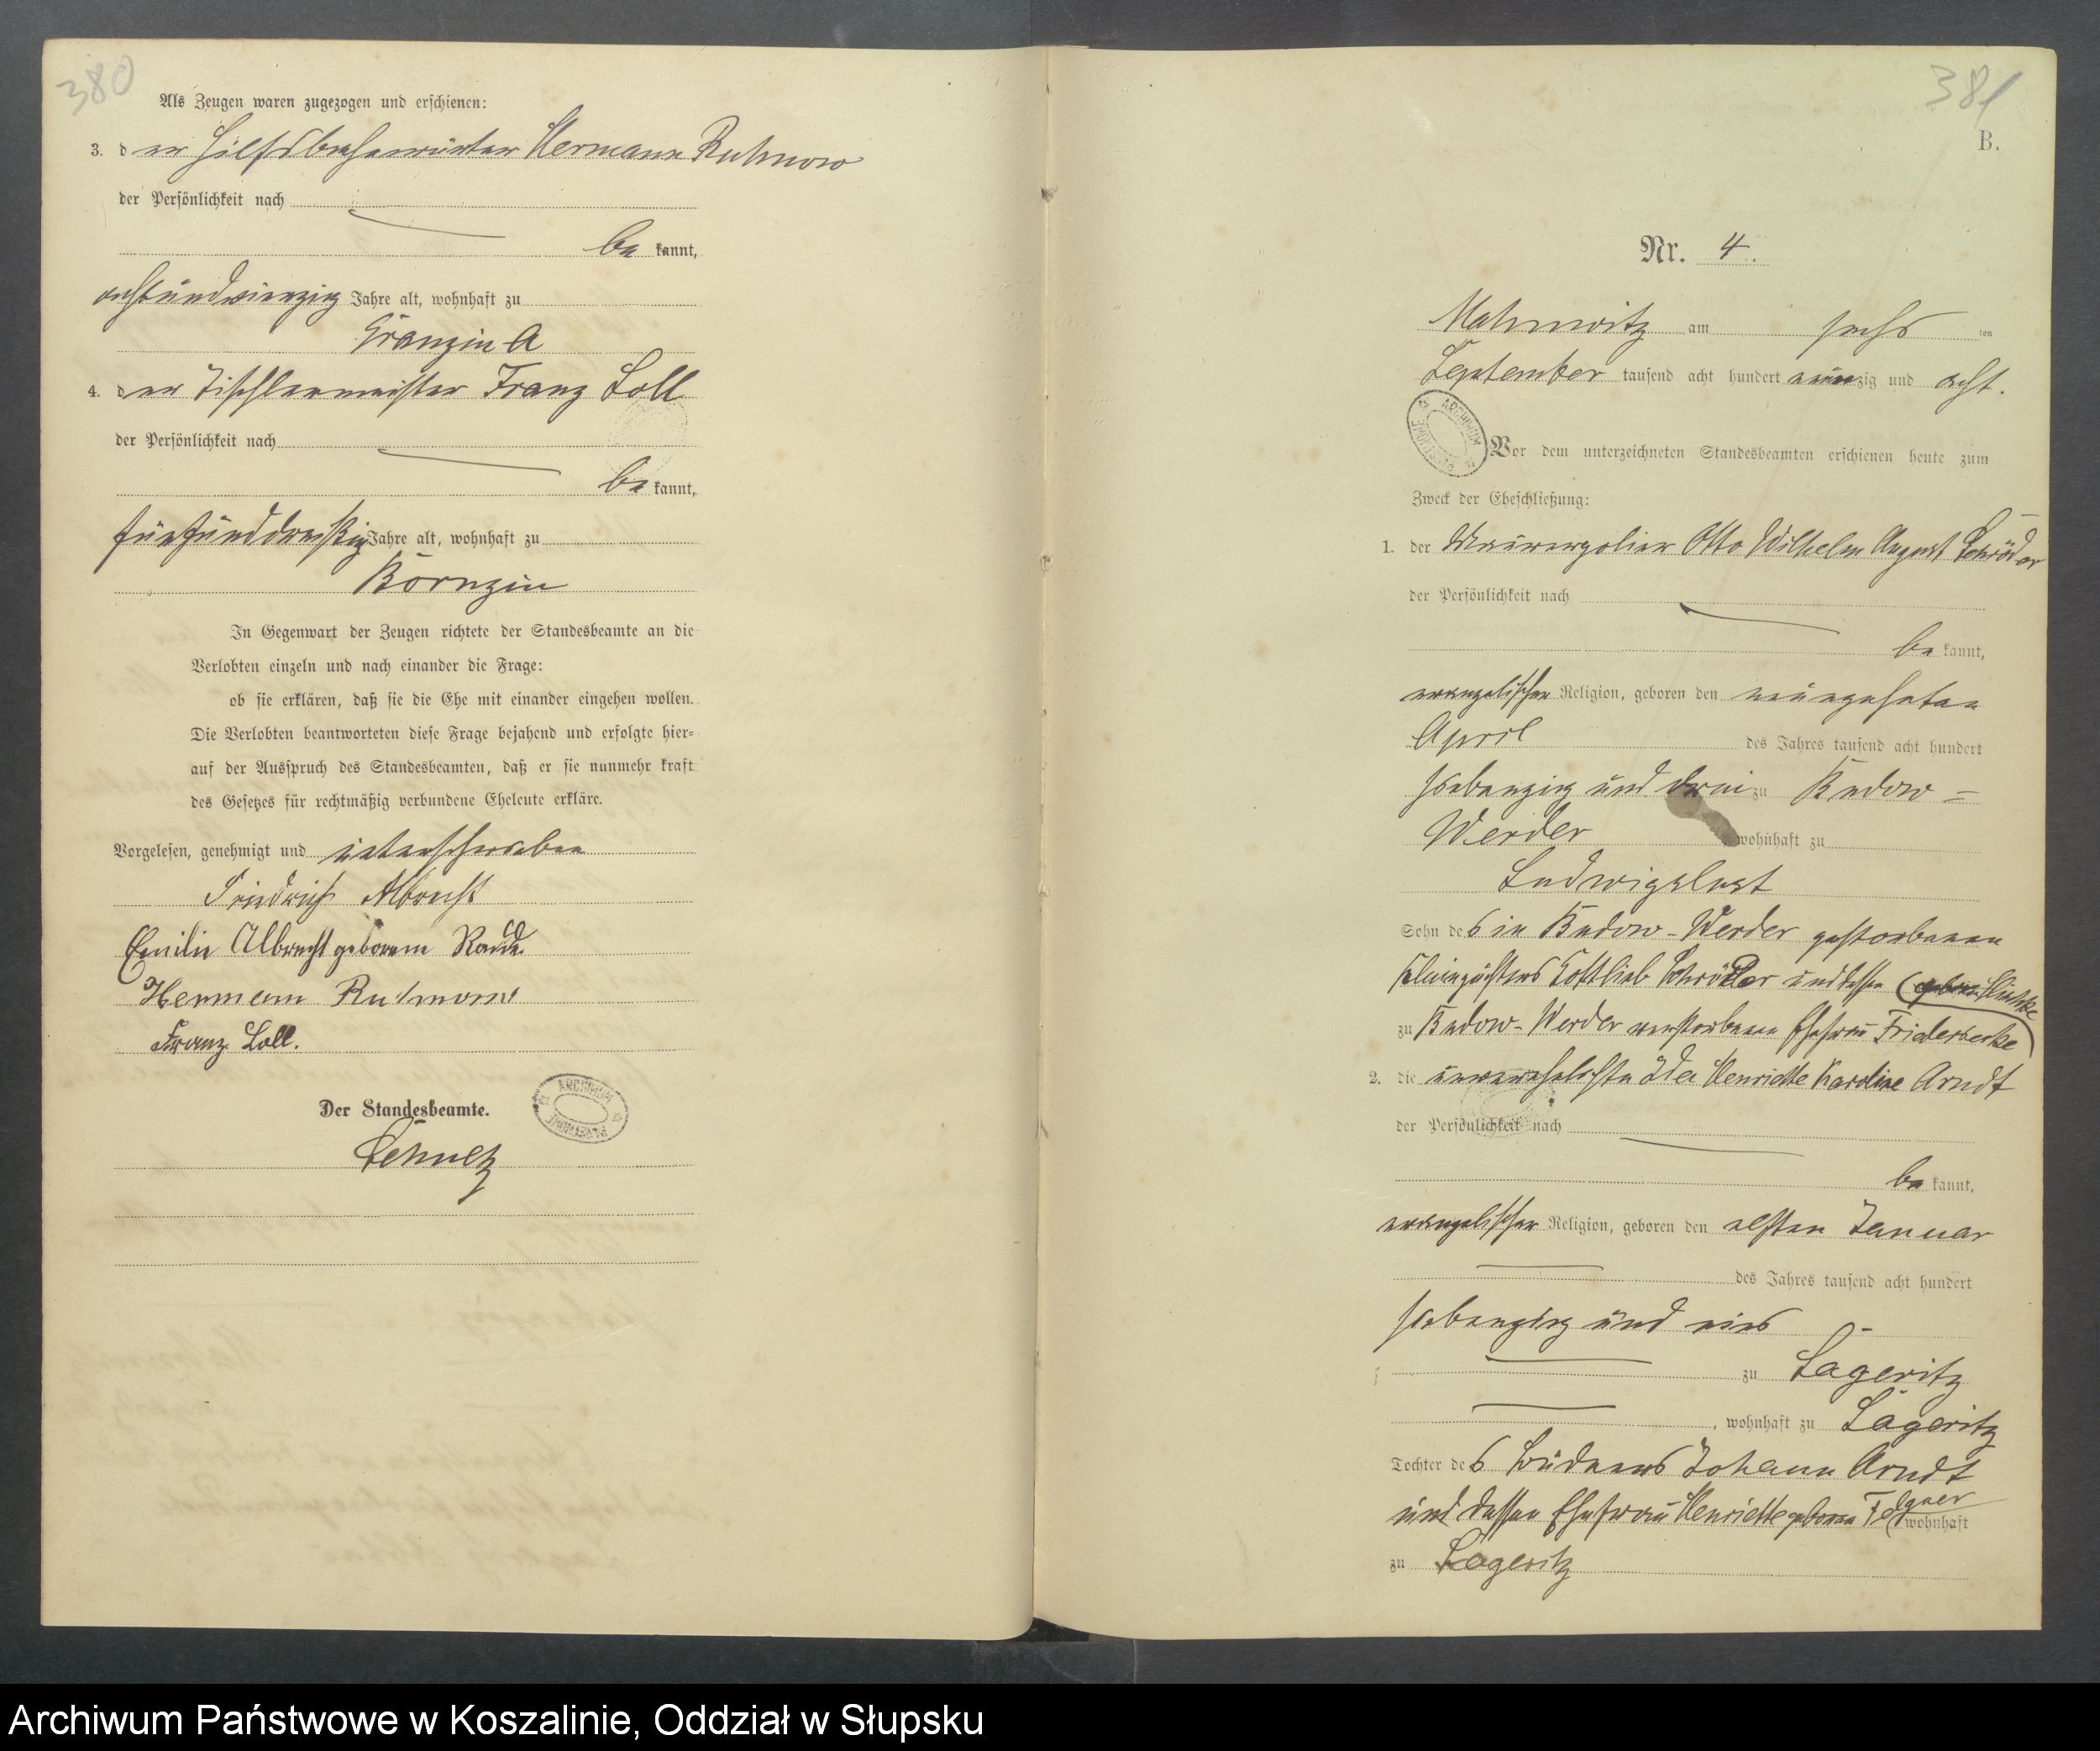 380
Als Zeugen waren zugezogen und erschienen:
3. der Hilfsbahnwärter Hermann Ruhnow
der Persönlichkeit nach
be kannt,
achtundvierzig Jahre alt, wohnhaft zu
Granzin A
4. der Tischlermeister Franz Loll
der Persönlichkeit nach
be kannt,
fünfunddreißig Jahre alt, wohnhaft zu
Kornzin
In Gegenwart der Zeugen richtete der Standesbeamte an die
Verlobten einzeln und nach einander die Frage:
ob sie erklären, daß sie die Ehe mit einander eingehen wollen.
Die Verlobten beantworteten diese Frage bejahend und erfolgte hier-
auf der Ausspruch des Standesbeamten, daß er sie nunmehr kraft
des Gesetzes für rechtmäßig verbundene Eheleute erkläre.
Vorgelesen, genehmigt und unterschrieben
Friedrich Albrecht
Emilie Albrecht geborene
Hermann Ruhnow
Franz Loll.
Der Standesbeamte.
ARCHIWUM PAŃSTWOWE
Schultz
381
B.
Nr. 4.
Mahnwitz am sechs ten
September tausend acht hundert neunzig und acht.
ARCHIWUM PAŃSTWOWE
Vor dem unterzeichneten Standesbeamten erschienen heute zum
Zweck der Eheschließung:
1. der Maurerpolier Otto Wilhelm August Schröder
der Persönlichkeit nach
be kannt,
evangelischer Religion, geboren den neunzehnten
April des Jahres tausend acht hundert
siebenzig und drei zu Rudow-
Werder wohnhaft zu
Ludwigslust
Sohn des in Rudow-Werder gestorbenen
Gottlieb Schröder und dessen
zu Rudow-Werder verstorbenen Ehefrau Friederike
2. die unverehelichte Ida Henriette Karoline Arndt
der Persönlichkeit nach
be kannt,
evangelischer Religion, geboren den elften Januar
des Jahres tausend acht hundert
siebenzig und eins
zu Lageritz
, wohnhaft zu Lageritz
Tochter des Büdners Johann Arndt
und dessen Ehefrau Henriette geborene wohnhaft
zu Lageritz
Archiwum Państwowe w Koszalinie, Oddział w Słupsku